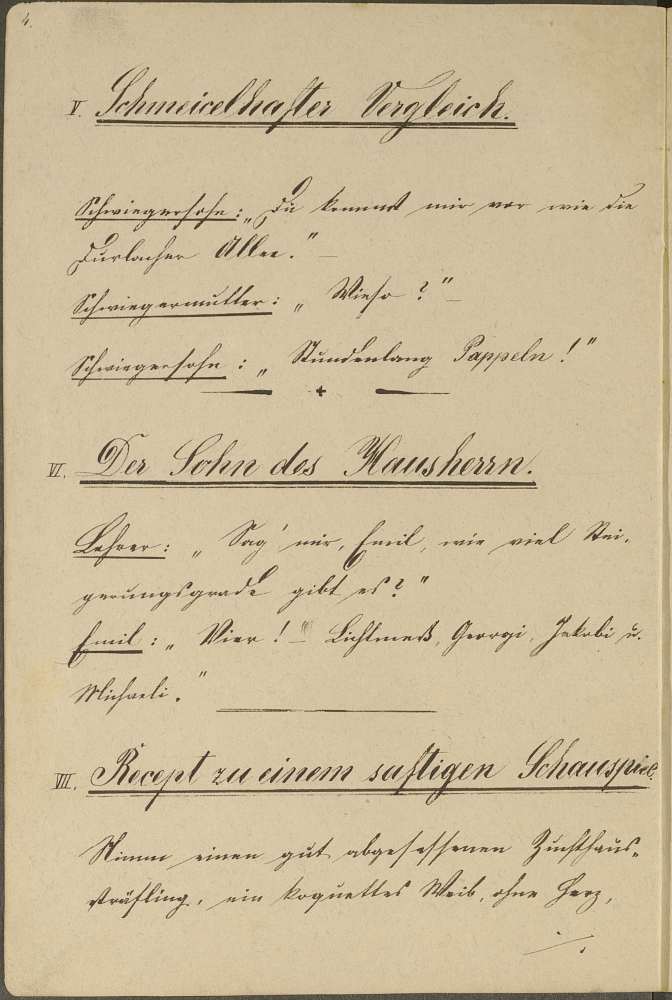 4.
V. Schmeicelhafter Vergleich.
Schwiegersohn: „Du kommst mir vor wie die
Durlacher Allee.“ –
Schwiegermutter: „Wieso?“ –
Schwiegersohn: „Stundenlang Pappeln!“
VI. Der Sohn des Hausherrn.
Lehrer: „Sag' mir, Emil, wie viel Stei-
gerungsgrade gibt es?“
Emil: „Vier! – Lichtmeß, Georgi, Jakobi u.
Michaeli.“
VII. Recept zu einem saftigen Schauspiel.
Nimm einen gut abgesessenen Zuchthaus-
sträfling, ein koquettes Weib, ohne Herz,
./.